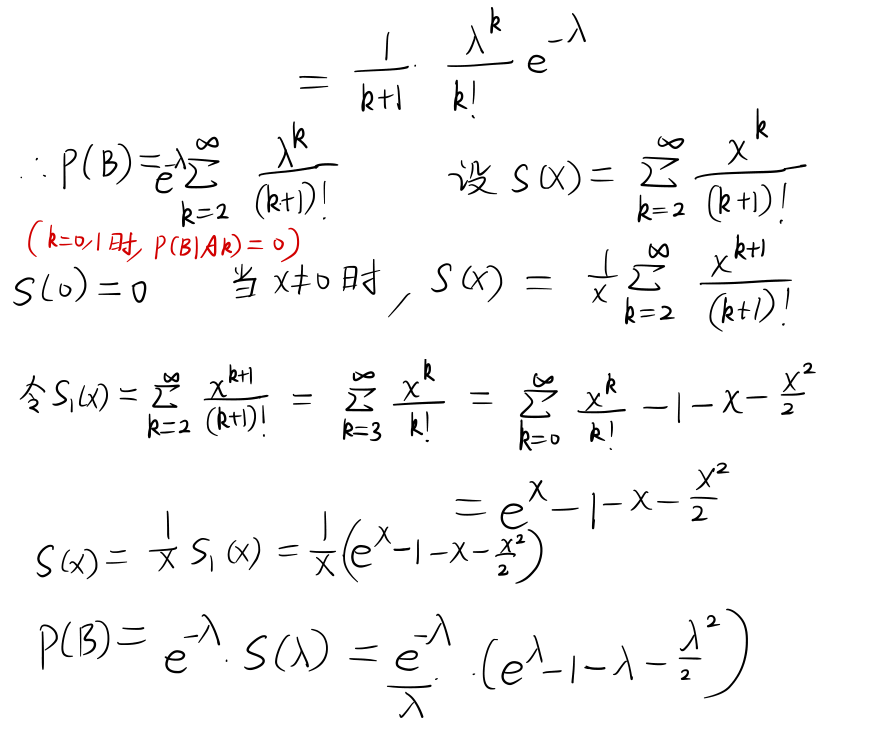 = \frac{1}{k+1} · \frac{λ^k}{k!} e^{-λ}
∴ P(B) = e^{-λ} \sum_{k=2}^{∞} \frac{λ^k}{(k+1)!} 设 S(x) = \sum_{k=2}^{∞} \frac{x^k}{(k+1)!}
(k=0,1时, P(B|Ak)=0)
S(0)=0 当 x≠0 时, S(x) = \frac{1}{x} \sum_{k=2}^{∞} \frac{x^{k+1}}{(k+1)!}
令 S_1(x) = \sum_{k=2}^{∞} \frac{x^{k+1}}{(k+1)!} = \sum_{k=3}^{∞} \frac{x^k}{k!} = \sum_{k=0}^{∞} \frac{x^k}{k!} -1-x-\frac{x^2}{2}
= e^x -1-x-\frac{x^2}{2}
S(x) = \frac{1}{x} S_1(x) = \frac{1}{x} (e^x -1-x-\frac{x^2}{2})
P(B) = e^{-λ} · S(λ) = \frac{e^{-λ}}{λ} · (e^λ -1-λ-\frac{λ^2}{2})